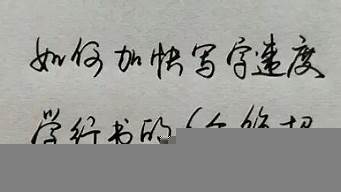 如何加快写字速度
学行书的